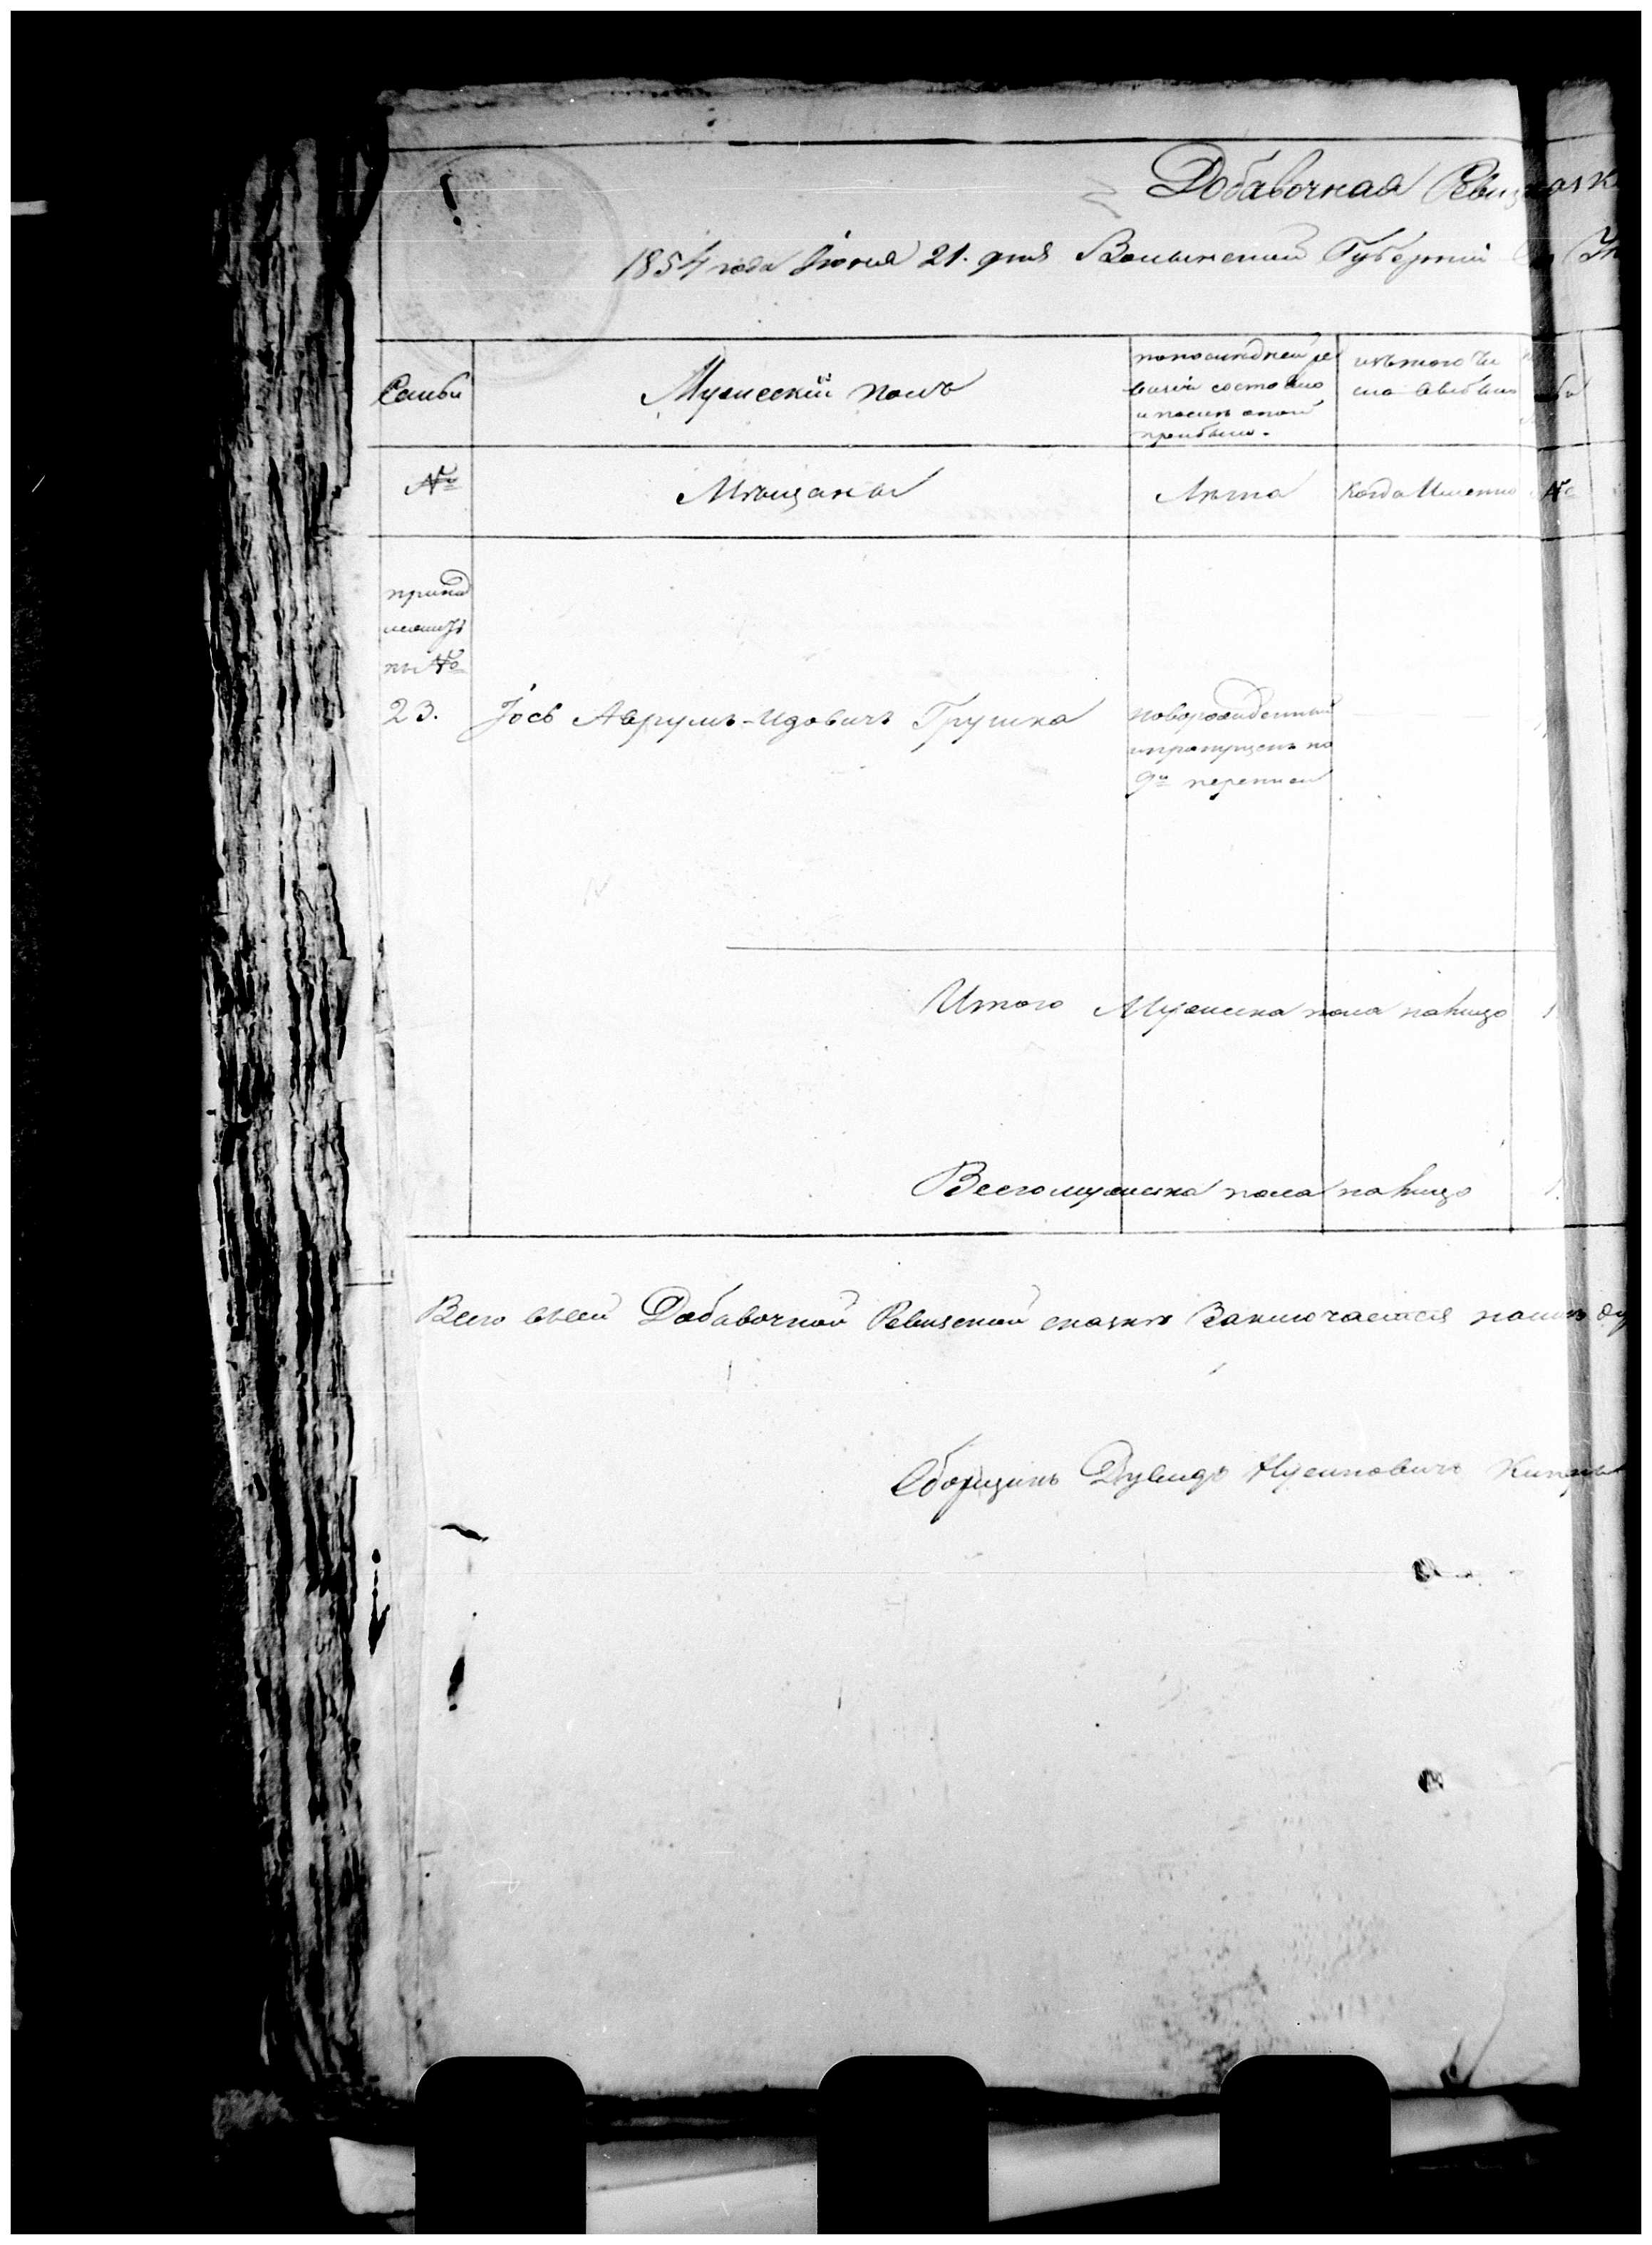 Добавочная Ревизская
1854 года Іюня 21. дня Волынской Губерніи
Семьи
Мужескій полъ
по последней ре
визіи состояло
и после оной
прибыло.
изъ того чи
сла выбыло
№
Мѣщана
Лѣта
Когда Именно
№
принад
лежитъ
къ №
23. Іось Аврумъ-Идовичъ Грушка
новорожденный
и пропущенъ по
9й переписи
Итого Мужеска пола налицо 1
Всего мужеска пола налицо 1.
Всего въ сей Добавочной Ревизской сказкѣ Заключается
Сборщикъ Дувидъ Нусиновичъ